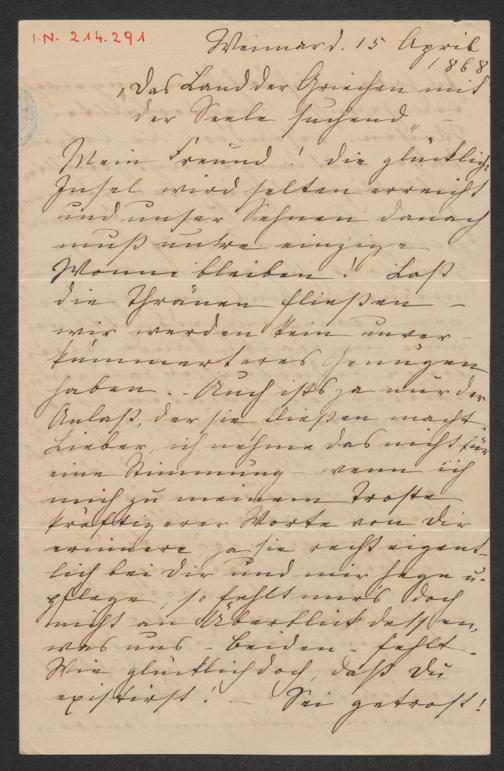 I.N. 214.291
Weimar d. 15 April
1868
„Das Land der Griechen mit
der Seele suchend“ –
Mein Freund! die glückliche
Insel wird selten erreicht
und unser Sehnen danach
muß unsre einzige
Wonne bleiben! Laß
die Thränen fließen –
wir werden kein unver-
kümmerteres Genügen
haben. – Auch ists ja nur der
Anlaß, der sie fließen macht.
Lieber, ich nehme das nicht für
eine Stimmung – wenn ich
mich zu meinem Troste
kräftigerer Worte von Dir
erinnere ja sie recht eigent-
lich bei Dir und mir hege u.
pflege, so fehlt mirs doch
nicht an Überblick dessen,
was uns – beiden – fehlt.
Wie glücklich doch, daß Du
existirst! – Sei getrost!